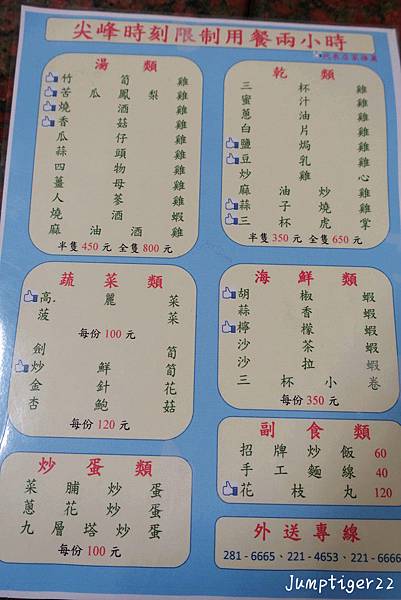 尖峰時刻限制用餐兩小時
代表店家推薦
湯類
竹筍雞
苦瓜鳳梨雞
燒酒雞
香菇雞
瓜仔雞
蒜頭雞
四物雞
薑母雞
人蔘雞
燒酒蝦
麻油酒雞
半隻 450 元 全隻 800 元
乾類
三杯雞
蜜汁雞
蔥油雞
白片雞
鹽焗雞
豆乳雞
炒雞心
麻油子炒雞
蒜子燒雞
三杯虎掌
半隻 350 元 全隻 650 元
蔬菜類
高麗菜
菠菜
每份 100 元
劍筍
炒鮮筍
金針花
杏鮑菇
每份 120 元
海鮮類
胡椒蝦
蒜香蝦
檸檬蝦
沙茶蝦
沙拉蝦
三杯小卷
每份 350 元
炒蛋類
菜脯炒蛋
蔥花炒蛋
九層塔炒蛋
每份 100 元
副食類
招牌炒飯 60
手工麵線 40
花枝丸 120
外送專線
281-6665、221-4653、221-6666
Jumptiger22